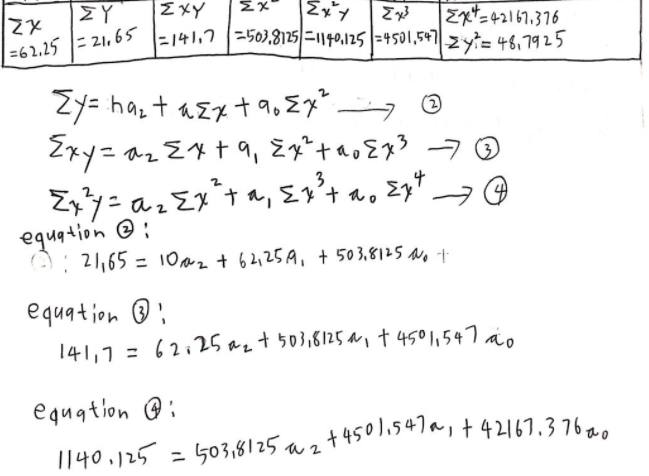 Σx =62.25 | ΣY = 21,65 | Σxy =141,7 | Σx² =503,8125 | Σx²y =1140,125 | Σx³ =4501,547 | Σx⁴=42167,376 Σy²= 48,7925
Σy= na₂ + aΣx + a₀Σx² → ②
Σxy = a₂Σx + a₁ Σx² + a₀Σx³ → ③
Σx²y = a₂Σx² + a₁Σx³ + a₀ Σx⁴ → ④
equation ② :
: 21,65 = 10a₂ + 62,25a₁ + 503,8125 a₀ +
equation ③ :
141,7 = 62.25 a₂ + 503,8125 a₁ + 4501,547 a₀
equation ④ :
1140.125 = 503,8125 a₂ + 4501,547a₁ + 42167.376 a₀